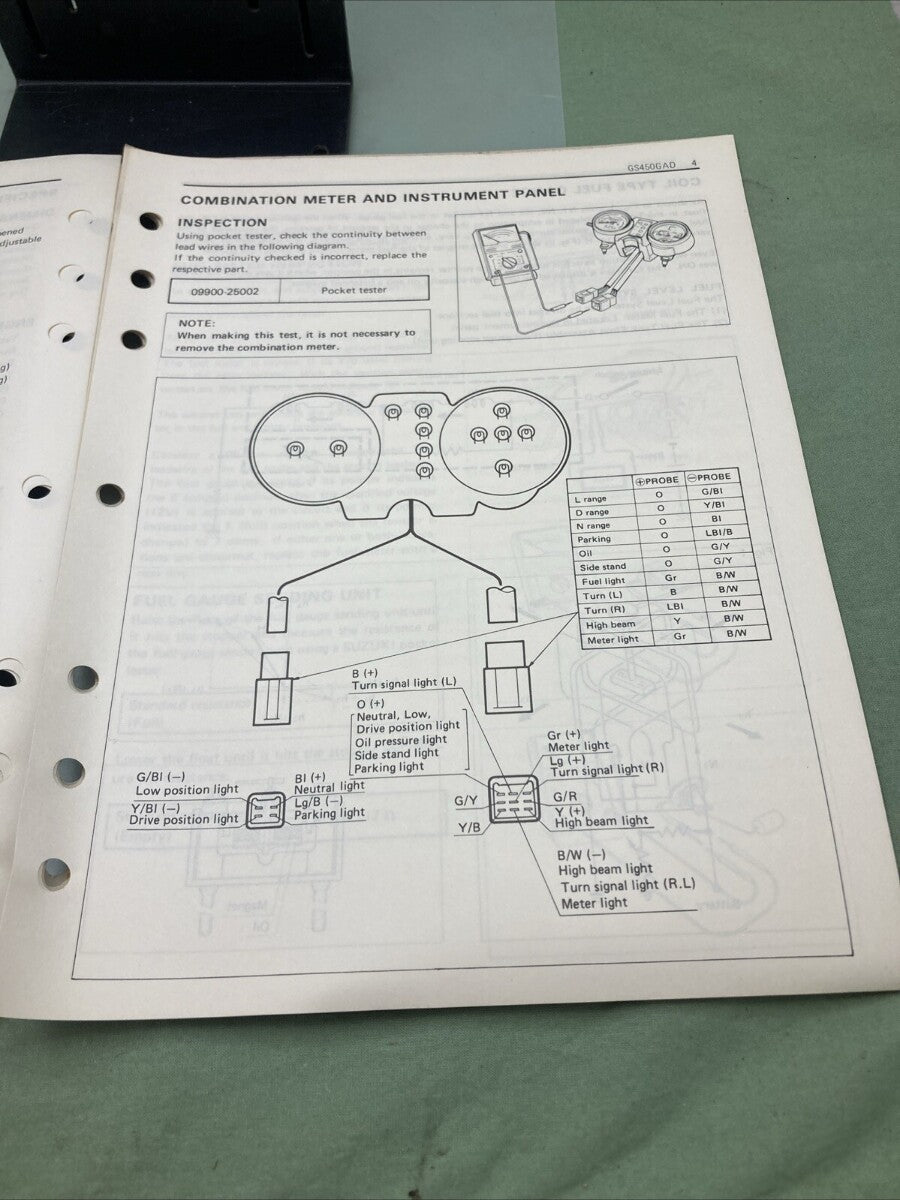 ened
djustable
g)
g)
GS450GAD 4
COMBINATION METER AND INSTRUMENT PANEL
INSPECTION
Using pocket tester, check the continuity between
lead wires in the following diagram.
If the continuity checked is incorrect, replace the
respective part.
09900-25002 Pocket tester
NOTE:
When making this test, it is not necessary to
remove the combination meter.
⊕PROBE ⊖PROBE
L range O G/Bl
D range O Y/Bl
N range O Bl
Parking O LBl/B
Oil O G/Y
Side stand O G/Y
Fuel light Gr B/W
Turn (L) B B/W
Turn (R) LBl B/W
High beam Y B/W
Meter light Gr B/W
B (+)
Turn signal light (L)
O (+)
Neutral, Low,
Drive position light
Oil pressure light
Side stand light
Parking light
Gr (+)
Meter light
Lg (+)
Turn signal light (R)
G/Bl (−)
Low position light
Y/Bl (−)
Drive position light
Bl (+)
Neutral light
Lg/B (−)
Parking light
G/Y
Y/B
G/R
Y (+)
High beam light
B/W (−)
High beam light
Turn signal light (R.L)
Meter light